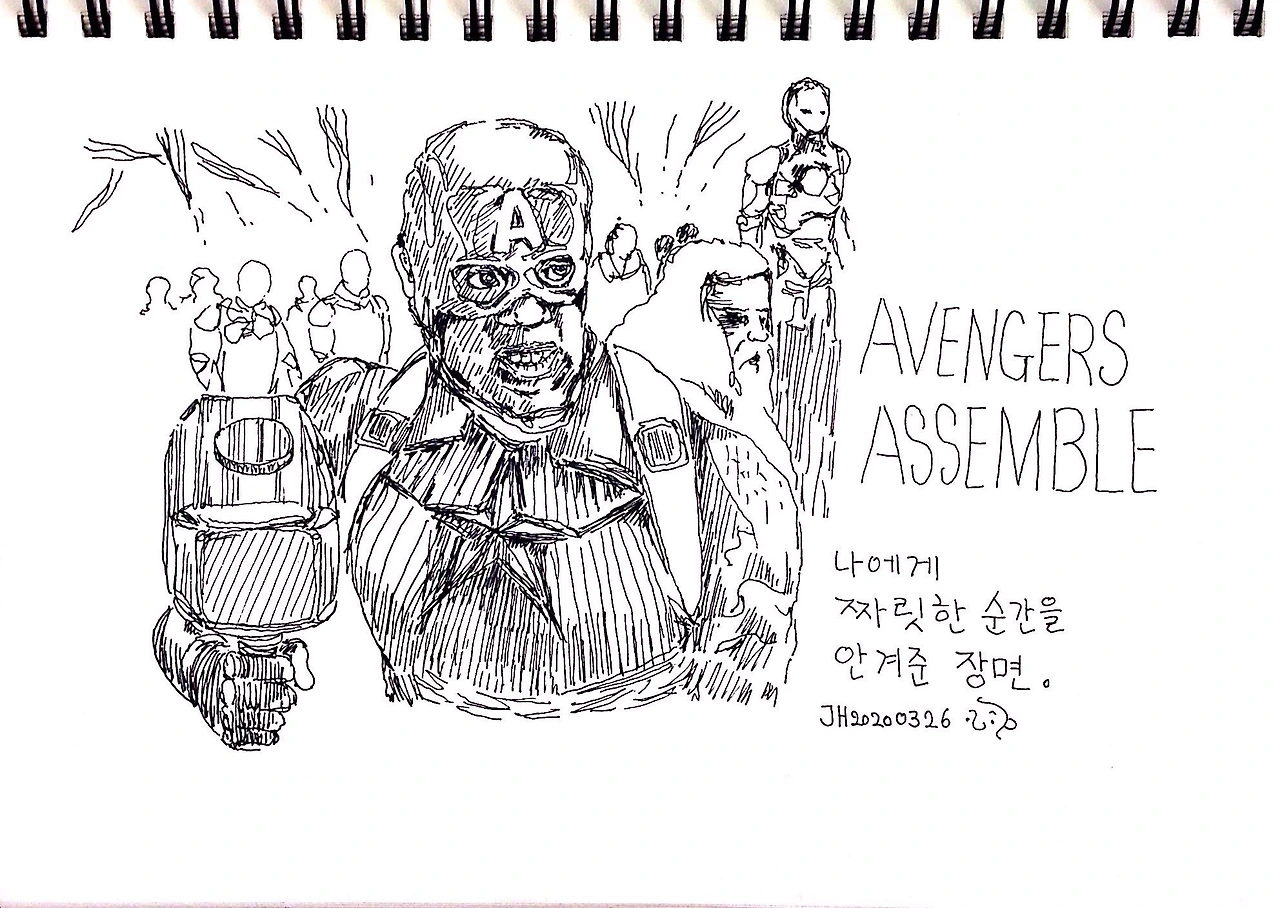 A
AVENGERS
ASSEMBLE
나에게
짜릿한 순간을
안겨준 장면.
JH20200326